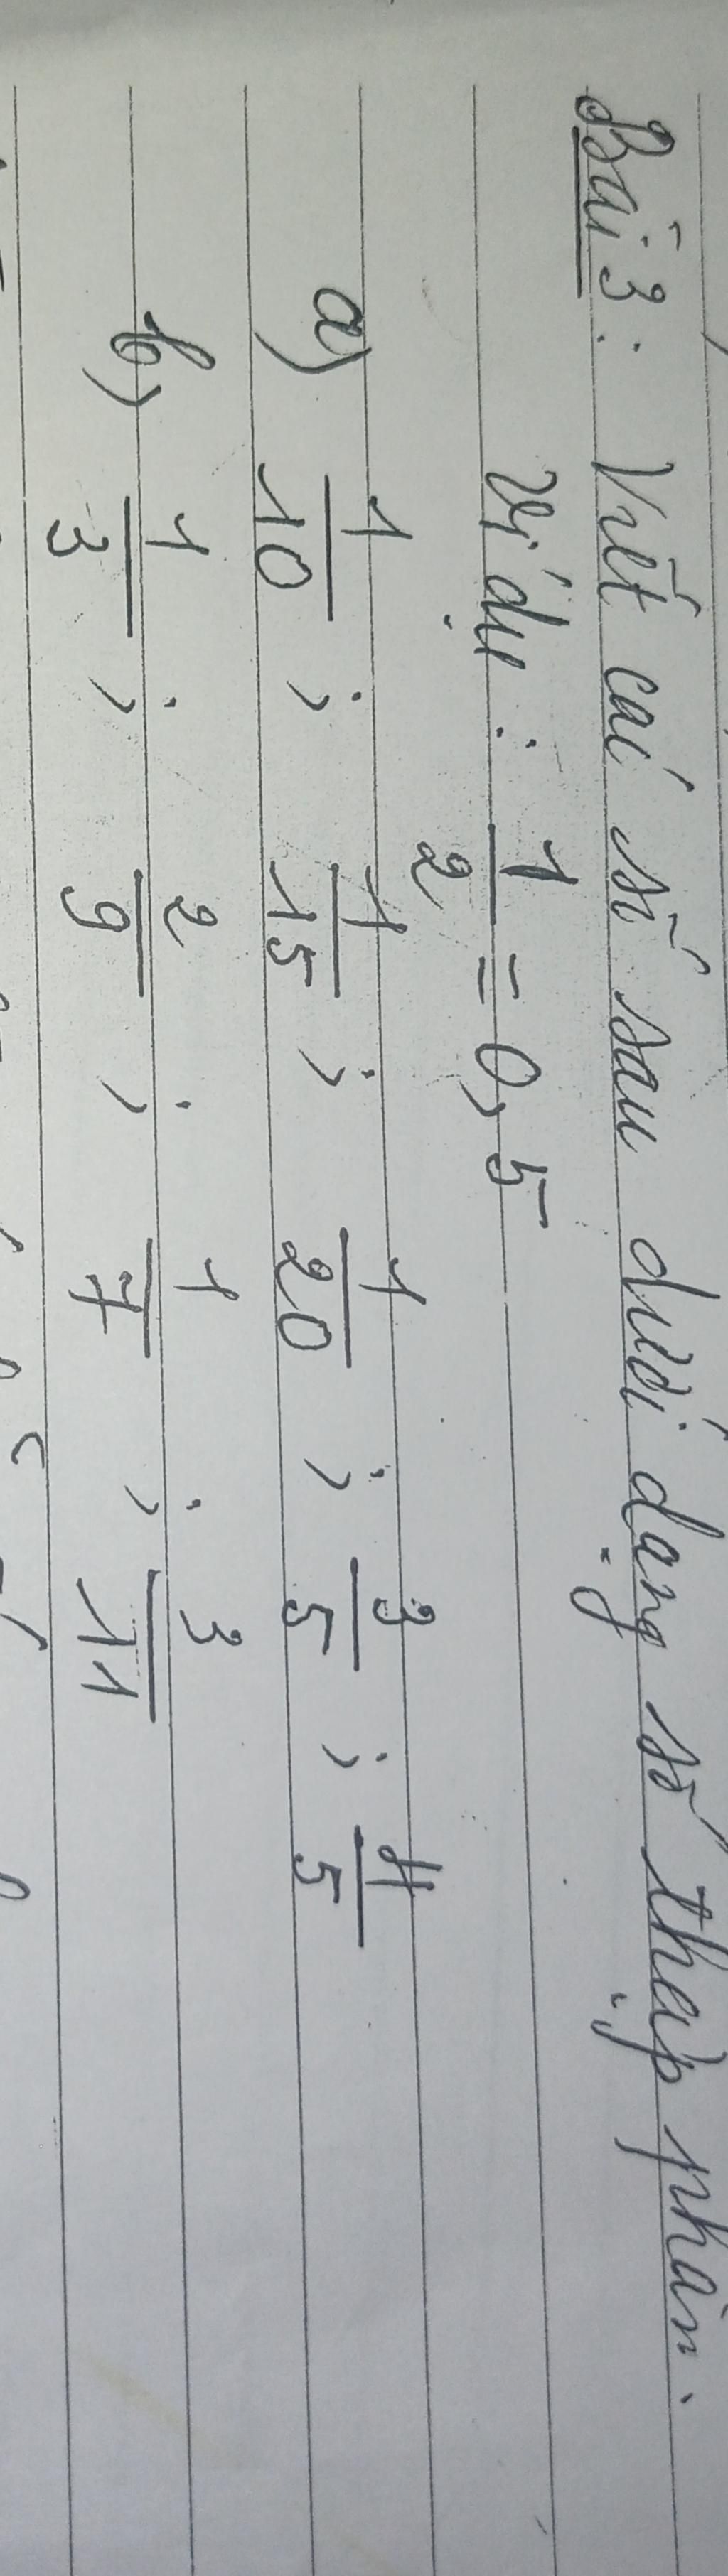 Bài 3: Viết các số sau dưới dạng số thập phân.
Ví dụ: 1/2 = 0,5
a) 1/10 ; 1/15 ; 1/20 ; 3/5 ; 4/5
b) 1/3 ; 2/9 ; 1/7 ; 3/11